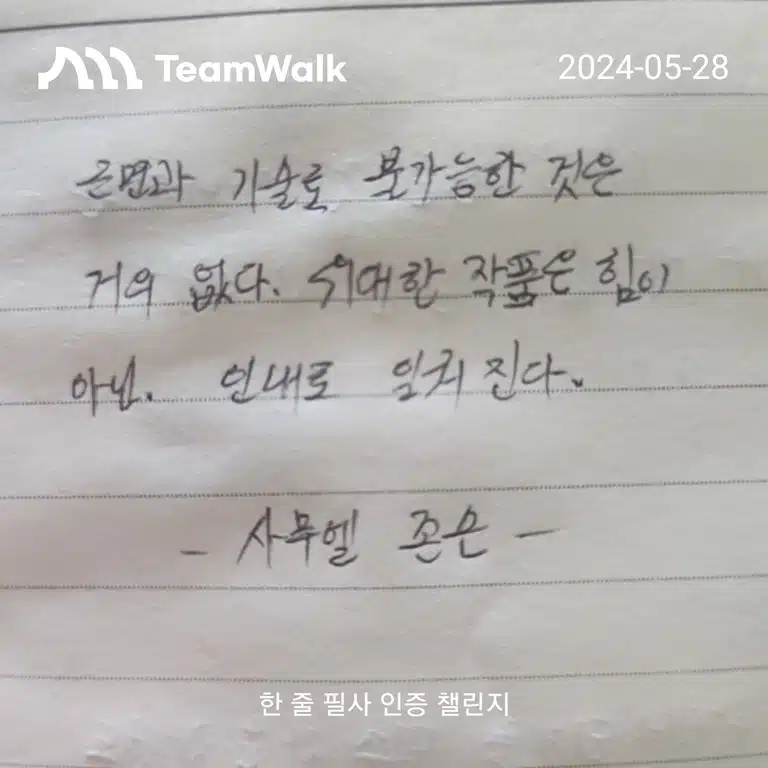 TeamWalk 2024-05-28
근면과 기술로 불가능한 것은
거의 없다. 위대한 작품은 힘이
아닌. 인내로 일궈진다.
- 사무엘 존슨 -
한 줄 필사 인증 챌린지